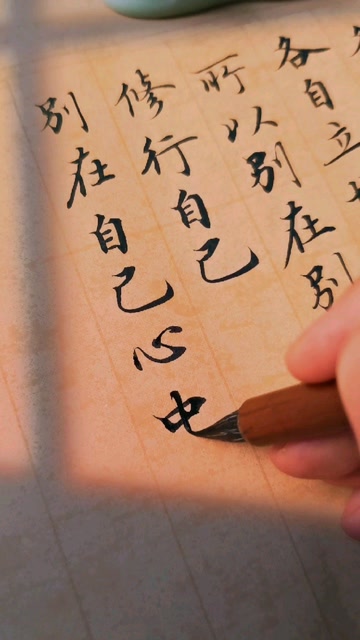 各自立
所以别在别
修行自己
别在自己心中